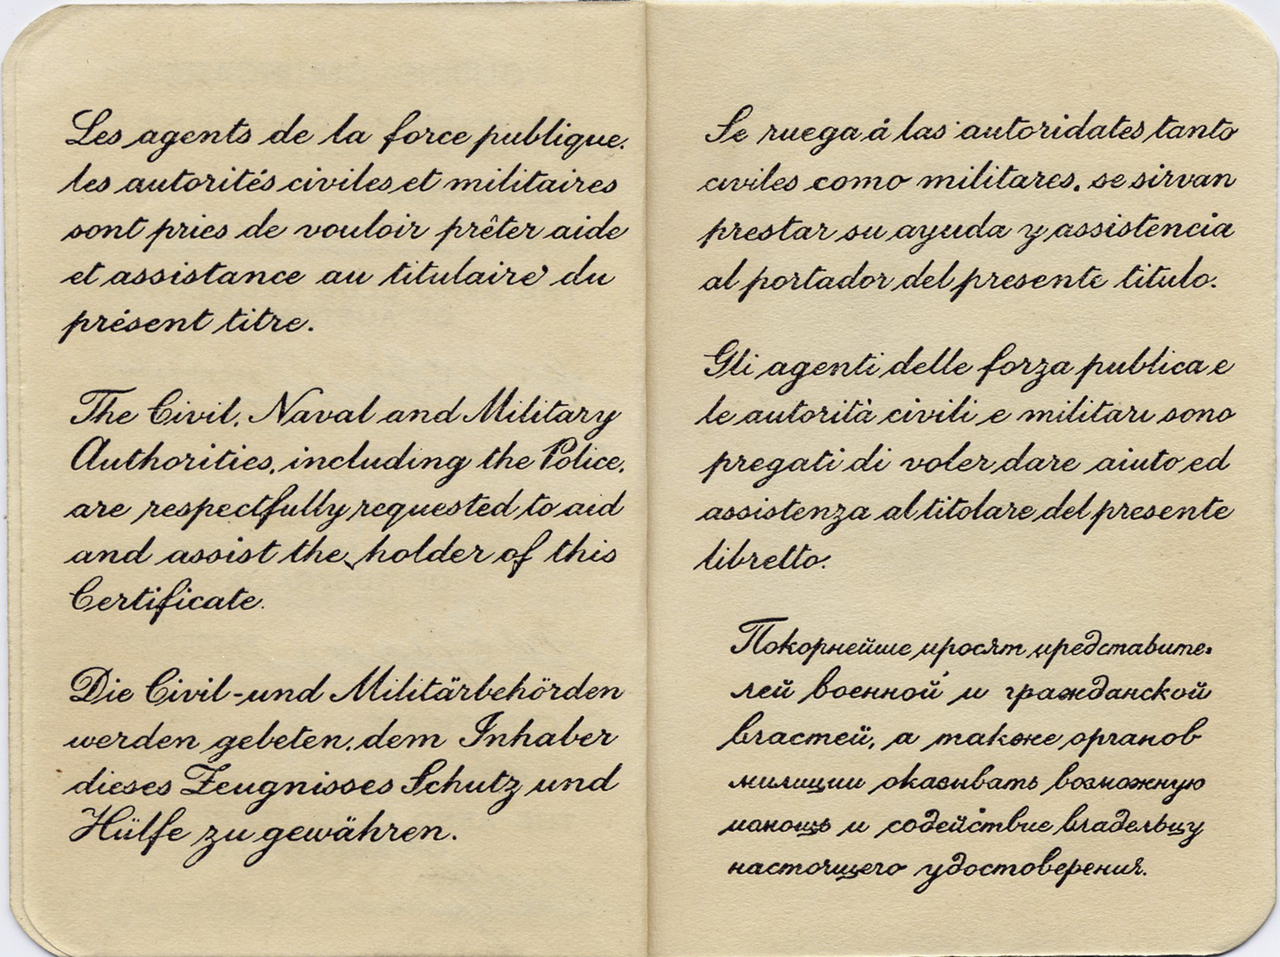 Les agents de la force publique,
les autorités civiles et militaires
sont pries de vouloir prêter aide
et assistance au titulaire du
présent titre.
The Civil, Naval and Military
Authorities, including the Police,
are respectfully requested to aid
and assist the holder of this
Certificate.
Die Civil-und Militärbehörden
werden gebeten, dem Inhaber
dieses Zeugnisses Schutz und
Hülfe zu gewähren.
Se ruega á las autoridates tanto
civiles como militares, se sirvan
prestar su ayuda y assistencia
al portador del presente titulo.
Gli agenti delle forza publica e
le autorità civili e militari sono
pregati di voler dare aiuto ed
assistenza al titolare del presente
libretto.
Покорнейше просят представите-
лей военной и гражданской
властей, а также органов
милиции оказывать возможную
помощь и содействие владельцу
настоящего удостоверения.